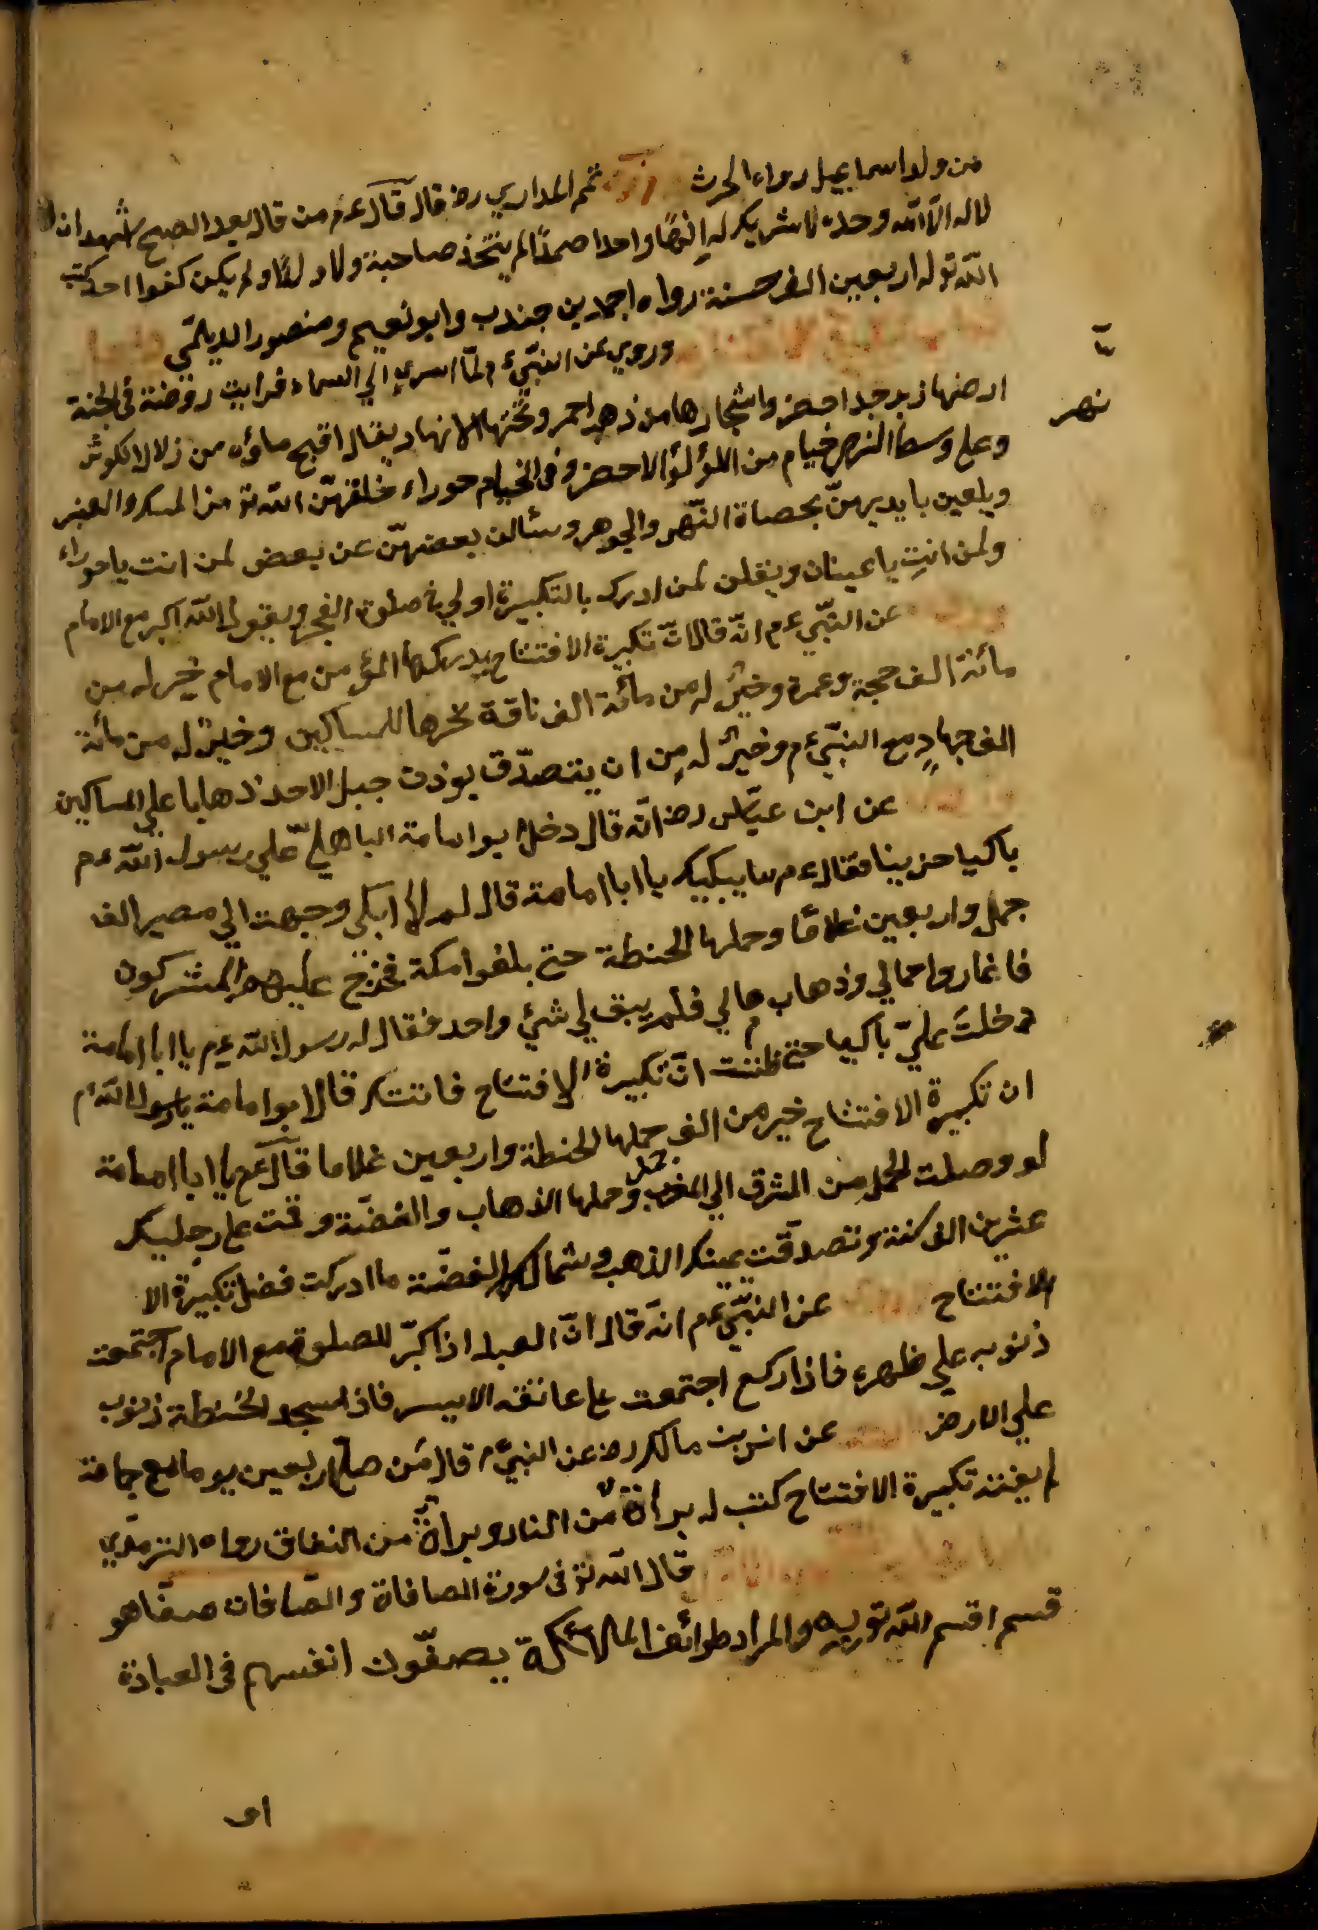 من ولد اسماعيل رواه الحرث تميم الداري رضه قال قال عم من قال بعد الصبح اشهد ان
لا اله الا الله وحده لا شريك له الها واحدا صمدا لم يتخذ صاحبة ولا ولدا ولم يكن كفوا احد كتب
الله تع له اربعين الف حسنة رواه احمد بن جندب وابو نعيم ومنصور الديلمي
وروي عن النبي عم لما اسري الي السماء فرايت روضة في الجنة
ارضها زبرجد احضر واشجارها من ذهب احمر وتحتها الانهار يقال اقبح ماؤه من زلال الكوثر
نهر
وعلي وسط النهر خيام من اللؤلؤ الاحضر وفي الخيام حوراء خلقهن الله تع من المسك والعنبر
ويلعبن بايديهن بحصاة النهر والجوهر وسئالن بعضهن عن بعض لمن انت يا حوراء
ولمن انت يا عينان ويقلن لمن ادرك بالتكبيرة اولي في صلوة الفجر ويقول الله اكبر مع الامام
عن النبي عم انه قال ان تكبيرة الافتتاح يدركها المؤمن مع الامام خير له من
مائة الف حجة وعمرة وخير له من مائة الف ناقة نحرها للمساكين وخير له من مائة
الف جهاد مع النبي عم وخير له من ان يتصدق بوزن جبل الاحد ذهابا علي المساكين
عن ابن عباس رضه انه قال دخل ابو امامة الباهلي علي رسول الله عم
باكيا حزينا فقال عم ما يبكيك يا ابا امامة قال لم لا ابكي وجهت الي مصير الف
جمل واربعين غلاما وحملها الحنطة حتي بلغوا مكة فخرج عليهم المشركون
فاغاروا احمالي وذهاب مالي فلم يبق لي شيء واحد فقال له رسول الله عم يا ابا امامة
دخلت علي باكيا حتي ظننت ان تكبيرة الافتتاح فاتتك قال ابو امامة يا رسول الله عم
ان تكبيرة الافتتاح خير من الف حملها الحنطة واربعين غلاما قال عم يا ابا امامة
لو وصلت الجمل من المشرق الي المغرب وحملها الذهاب والفضة وقمت علي رجليك
عشرين الف سنة وتصدقت يمينك الذهب وشمالك الفضة ما ادركت فضل تكبيرة الا
الافتتاح عن النبي عم انه قال ان العبد اذا كبر للصلوة مع الامام اجتمعت
ذنوبه علي ظهره فاذا ركع اجتمعت علي عاتقه الايسر فاذا سجد الحنطة ذنوب
علي الارض عن انس بن مالك رضه عن النبي عم قال من صلي اربعين يوما مع جماعة
لم يفته تكبيرة الافتتاح كتب له براة من النار وبراة من النفاق رواه الترمذي
قال الله تع في سورة الصافاة والصافات صفا هو
قسم اقسم الله تع به والمراد طوائف الملائكة يصفون انفسهم في العبادة